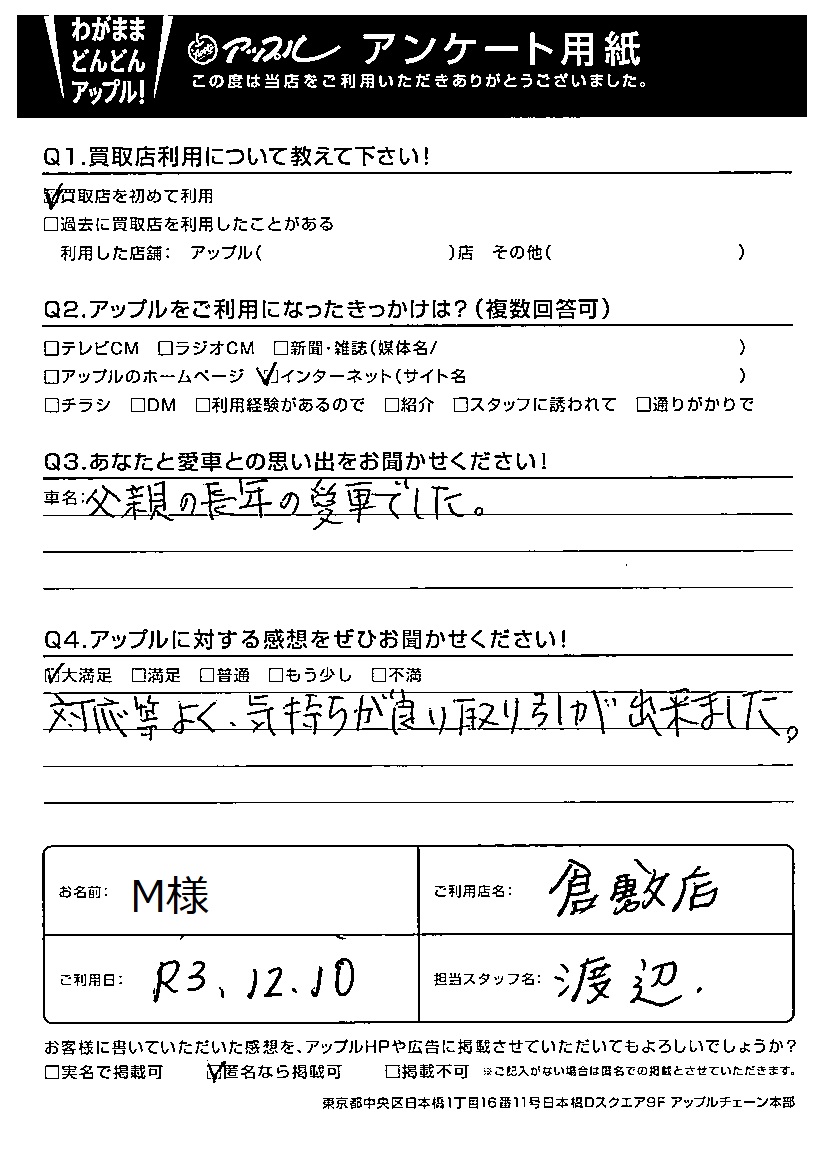 わがまま
どんどん
アップル!
アップル アンケート用紙
この度は当店をご利用いただきありがとうございました。
Q1.買取店利用について教えて下さい!
☑買取店を初めて利用
□過去に買取店を利用したことがある
利用した店舗: アップル( )店 その他( )
Q2.アップルをご利用になったきっかけは?(複数回答可)
□テレビCM □ラジオCM □新聞・雑誌(媒体名/ )
□アップルのホームページ ☑インターネット(サイト名 )
□チラシ □DM □利用経験があるので □紹介 □スタッフに誘われて □通りがかりで
Q3.あなたと愛車との思い出をお聞かせください!
車名:父親の長年の愛車でした。
Q4.アップルに対する感想をぜひお聞かせください!
☑大満足 □満足 □普通 □もう少し □不満
対応等よく、気持ちが良い取り引きが出来ました。
お名前: M様
ご利用店名: 倉敷店
ご利用日: R3.12.10
担当スタッフ名: 渡辺.
お客様に書いていただいた感想を、アップルHPや広告に掲載させていただいてもよろしいでしょうか?
□実名で掲載可 ☑匿名なら掲載可 □掲載不可 ※ご記入がない場合は匿名での掲載とさせていただきます。
東京都中央区日本橋1丁目16番11号日本橋Dスクエア9F アップルチェーン本部